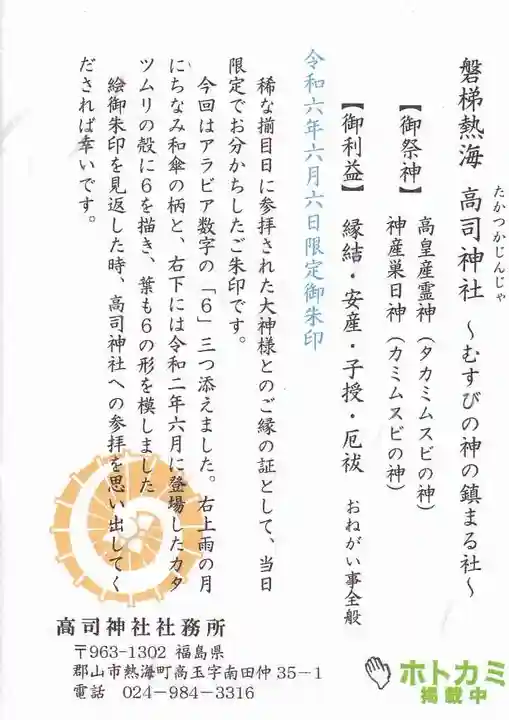 磐梯熱海 高司神社 ～むすびの神の鎮まる社～
たかつかじんじゃ
【御祭神】 高皇産霊神（タカミムスビの神）
神産巣日神（カミムスビの神）
【御利益】 縁結・安産・子授・厄祓 おねがい事全般
令和六年六月六日限定御朱印
稀な揃目日に参拝された大神様とのご縁の証として、当日
限定でお分かちしたご朱印です。
今回はアラビア数字の「6」三つ添えました。右上雨の月
にちなみ和傘の柄と、右下には令和二年六月に登場したカタ
ツムリの殻に6を描き、葉も6の形を模しました
絵御朱印を見返した時、高司神社への参拝を思い出してく
だされば幸いです。
高司神社社務所
〒963-1302 福島県
郡山市熱海町高玉字南田仲 35－1
電話 024-984-3316
ホトカミ
掲載中